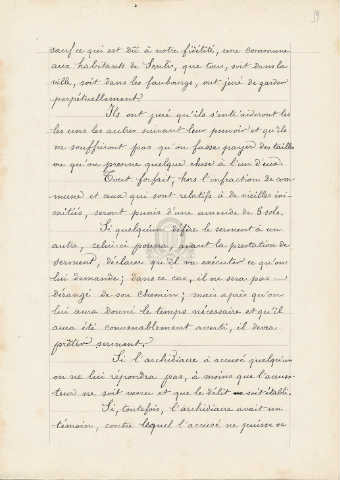 19
sauf ce qui est dû à notre fidélité, une commune
aux habitants de Senlis, que tous, soit dans la
ville, soit dans les faubourgs, ont juré de garder
perpétuellement.
Ils ont juré qu'ils s'entr'aideront les
les uns les autres suivant leur pouvoir et qu'ils
ne souffriront pas qu'on fasse payer des tailles
ou qu'on prenne quelque chose à l'un d'eux.
Tout forfait, hors l'infraction de com-
mune et ceux qui sont relatifs à de vieilles ini-
mitiés, seront punis d'une amende de 5 sols.
Si quelqu'un défère le serment à un
autre, celui-ci pourra, avant la prestation de
serment, déclarer qu'il va exécuter ce qu'on
lui demande; dans ce cas, il ne sera pas
dérangé de son chemin; mais après qu'on
lui aura donné le temps nécessaire et qu'il
aura été convenablement averti, il devra
prêter serment.
Si l'archidiacre a accusé quelqu'un
on ne lui répondra pas, à moins que l'accusa-
teur ne soit venu et que le délit soit établi.
Si, toutefois, l'archidiacre avait un
témoin, contre lequel l'accusé ne puisse se